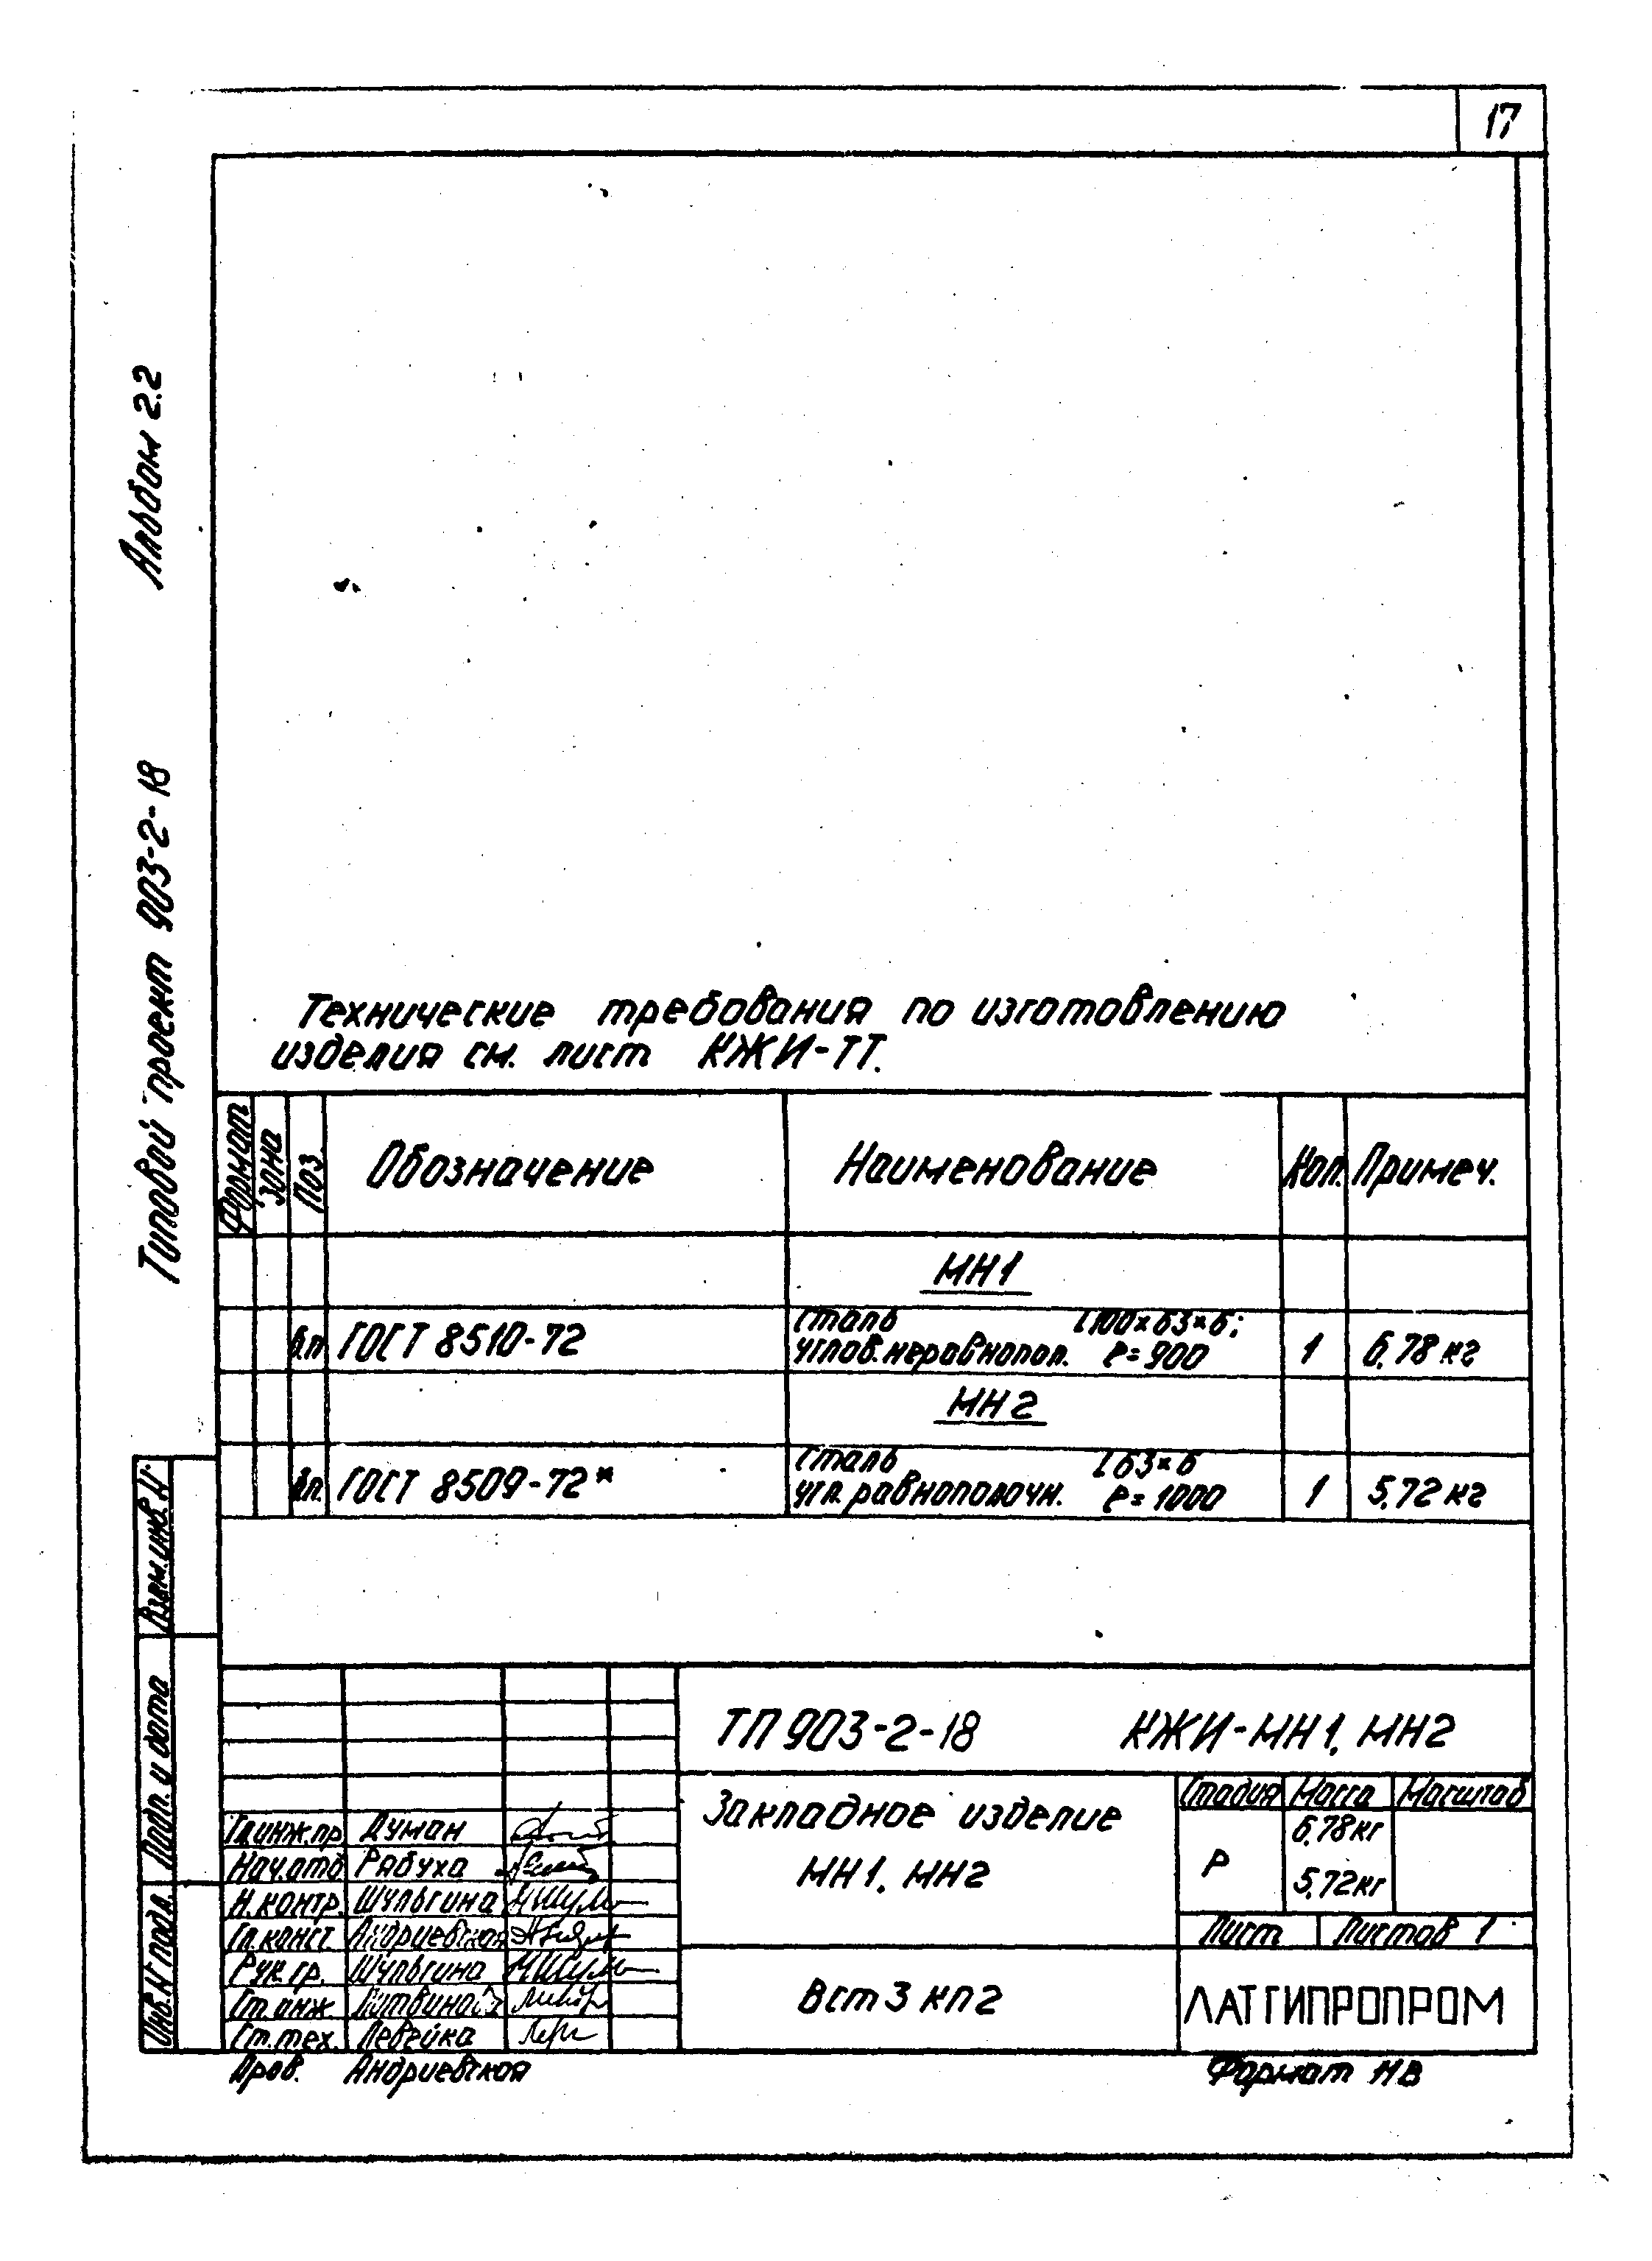 17
Альбом 2.2
Типовой проект 903-2-18
Технические требования по изготовлению
изделия см. лист КЖИ-ТТ.
Формат Зона Поз Обозначение Наименование Кол. Примеч.
МН1
б.п ГОСТ 8510-72 Сталь L100×63×6;
углов. неравнопол. ℓ=900 1 6,78 кг
МН2
б.п. ГОСТ 8509-72* Сталь L63×6
угл. равнополочн. ℓ=1000 1 5,72 кг
Взам.инв.N
Подп. и дата
Инв.N подл.
ТП 903-2-18 КЖИ-МН1, МН2
Закладное изделие
МН1, МН2
Стадия Масса Масштаб
Р 6,78кг
5,72кг
Лист Листов 1
Вст3 кп2
ЛАТГИПРОПРОМ
Гл.инж.пр Думан
Нач.отд Рябуха
Н.контр. Шульгина
Гл.конст. Андриевская
Рук.гр. Шульгина
Ст.инж.
Ст.тех. Левейка
Пров. Андриевская
Формат 11В